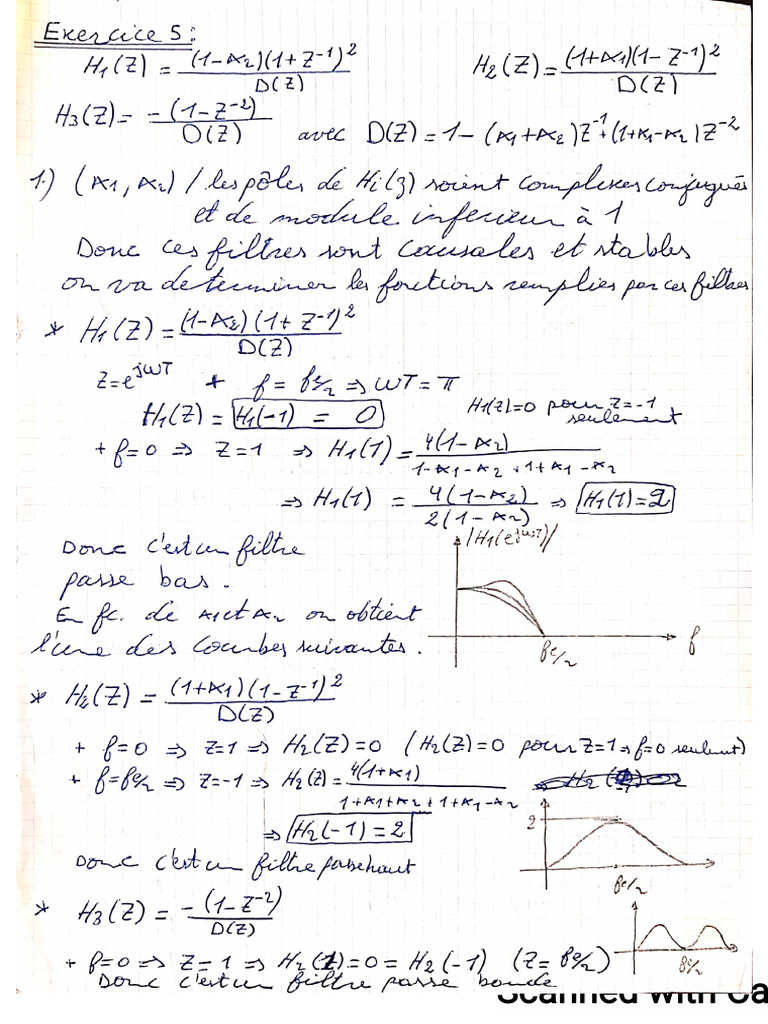 Exercice 5:
H1(Z) = (1-α2)(1+Z^-1)^2 / D(Z) H2(Z) = (1+α1)(1-Z^-1)^2 / D(Z)
H3(Z) = -(1-Z^-2) / D(Z) avec D(Z) = 1-(α1+α2)Z^-1+(1+α1-α2)Z^-2
1.) (α1, α2) / les pôles de Hi(z) soient complexes conjugués
et de module inférieur à 1
Donc ces filtres sont causales et stables
on va determiner les fonctions remplies par ces filtres
* H1(Z) = (1-α2)(1+Z^-1)^2 / D(Z)
Z=e^jωT + f = fe/2 ⇒ ωT = π
H1(Z) = H1(-1) = 0 H1(Z)=0 pour Z=-1
seulement
+ f=0 ⇒ Z=1 ⇒ H1(1) = 4(1-α2) / 1-α1-α2+1+α1-α2
⇒ H1(1) = 4(1-α2) / 2(1-α2) ⇒ H1(1)=2
Donc c'est un filtre
passe bas.
|H1(e^jωT)|
En fc. de α1 et α2 on obtient
l'une des courbes suivantes.
fe/2 f
* H2(Z) = (1+α1)(1-Z^-1)^2 / D(Z)
+ f=0 ⇒ Z=1 ⇒ H2(Z)=0 (H2(Z)=0 pour Z=1 ⇒ f=0 seulemt)
+ f=fe/2 ⇒ Z=-1 ⇒ H2(Z) = 4(1+α1) / 1+α1+α2+1+α1-α2
⇒ H2(-1)=2
2
Donc c'est un filtre passe haut
fe/2
* H3(Z) = -(1-Z^-2) / D(Z)
+ f=0 ⇒ Z=1 ⇒ H2(1)=0=H2(-1) (Z=fe/2)
fe/2
Donc c'est un filtre passe bande
Scanned with Ca